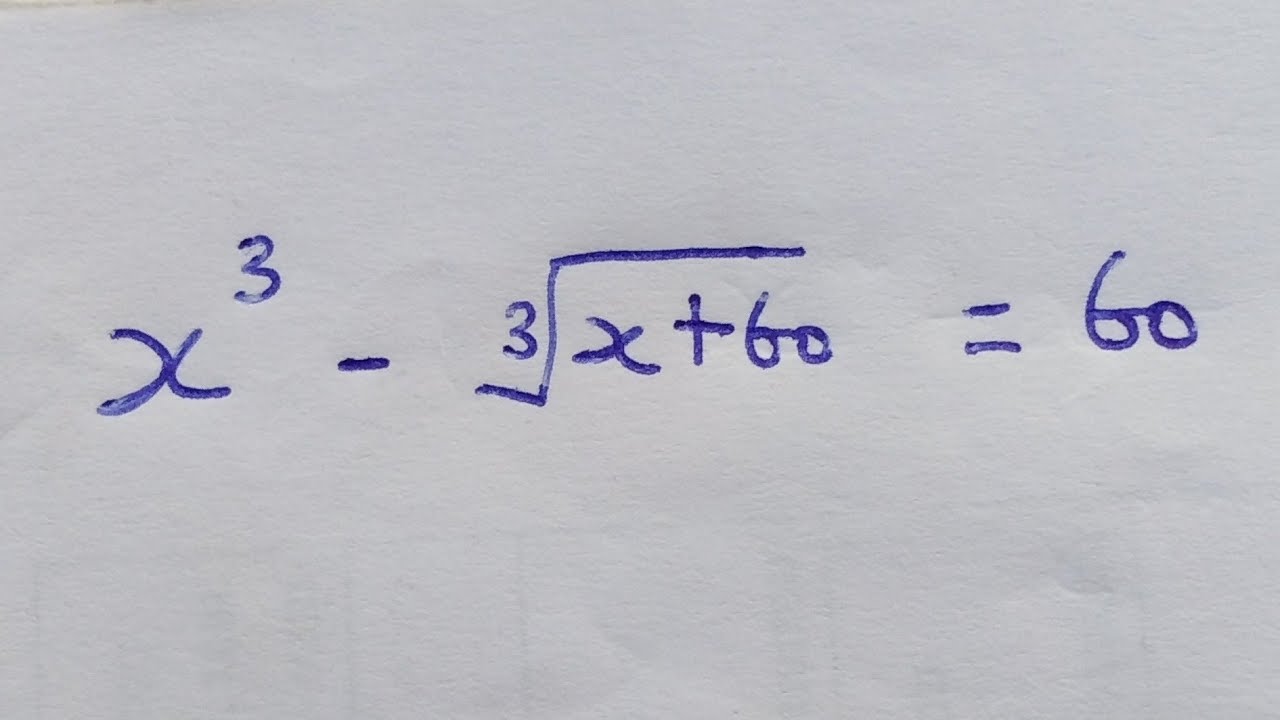 x³ - ∛(x+60) = 60